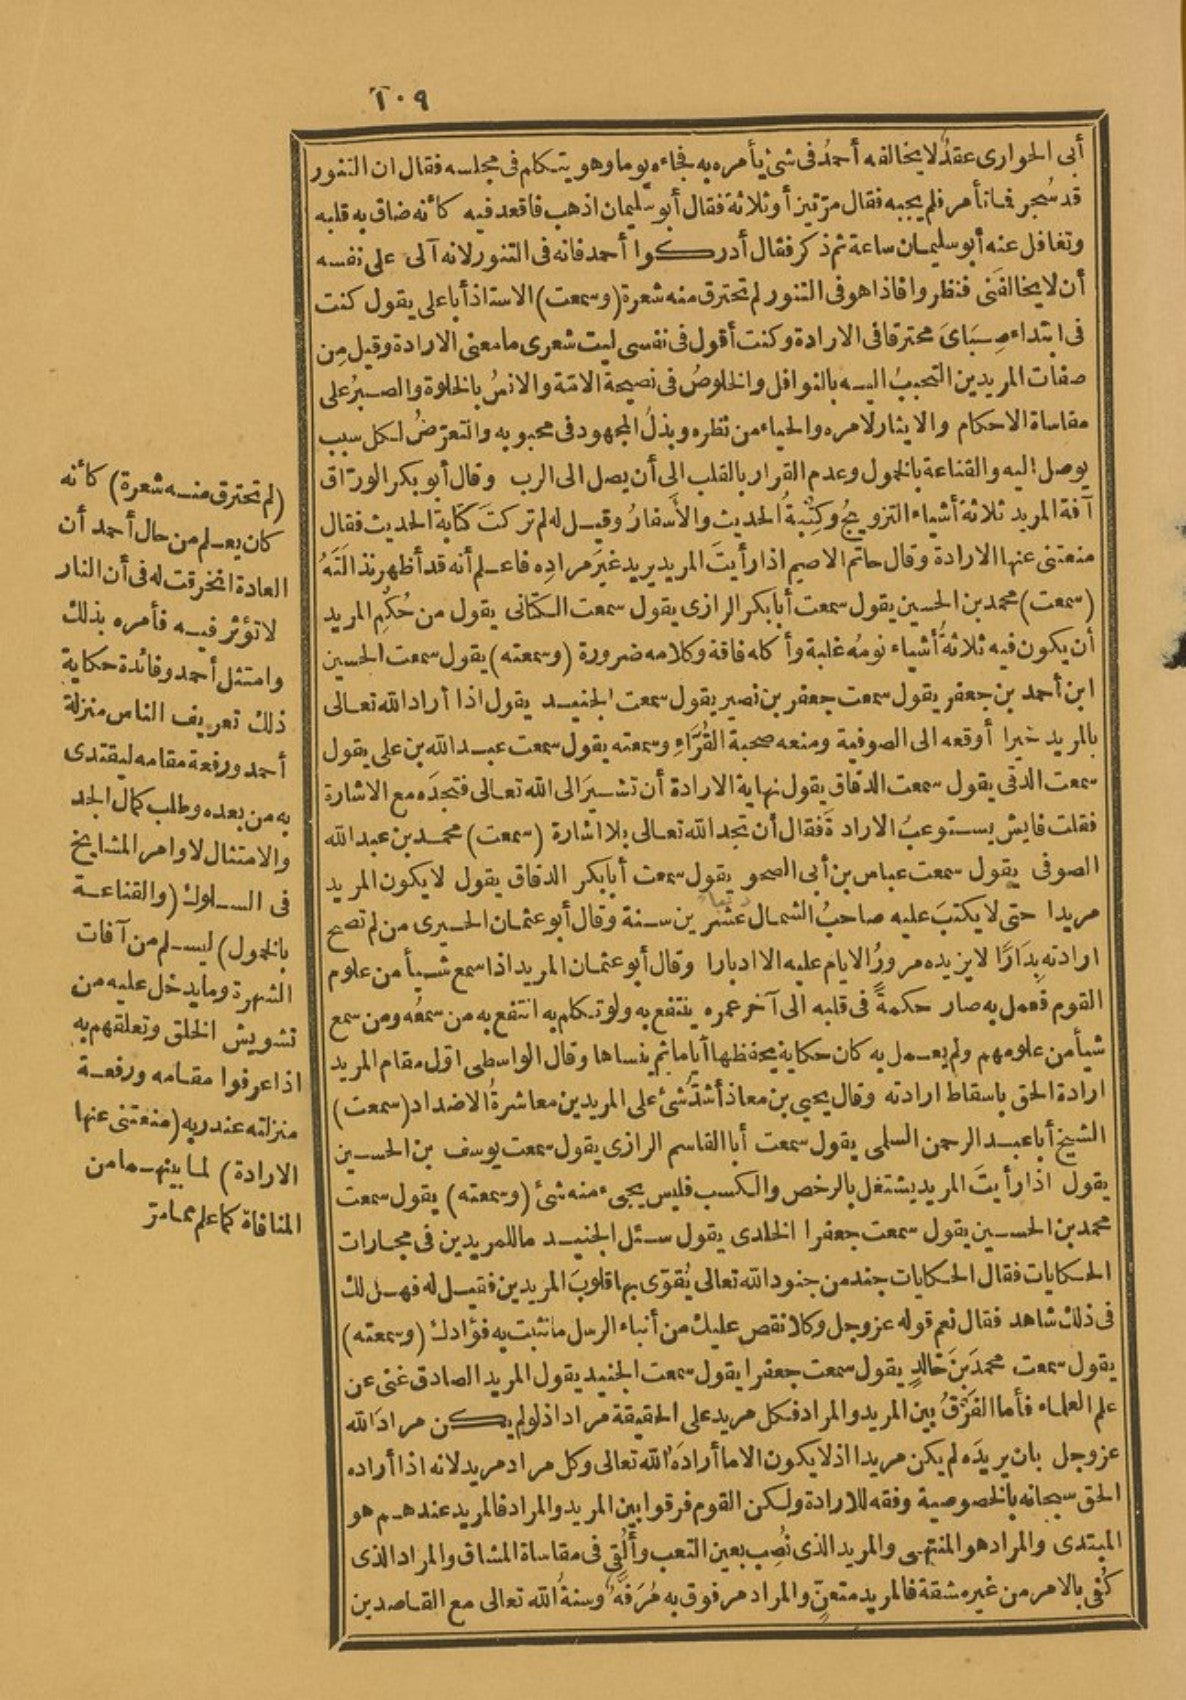 ١٠٩
أبى الحوارى عقدٌ لا يخالفه أحمدُ فى شئ يأمره به فجاءه يوما وهو يتكلم فى مجلسه فقال ان التنور
قد سُجر فما تأمر فلم يجبه فقال مرّتين أو ثلاثة فقال أبو سليمان اذهب فاقعد فيه كأنه ضاق به قلبه
وتغافل عنه أبو سليمان ساعة ثم ذكر فقال أدركوا أحمد فانه فى التنور لانه آلى على نفسه
أن لا يخالفَنى فنظروا فاذا هو فى التنور لم تحترق منه شعرة (وسمعت) الاستاذ أبا على يقول كنت
فى ابتداء صِبَاىَ محترقا فى الارادة وكنت أقول فى نفسى ليت شعرى ما معنى الارادة وقيل مِن
صفات المريدين التحببُ اليه بالنوافل والخلوصُ فى نصيحة الامّة والانسُ بالخلوة والصبرُ على
مقاساة الاحكام والايثار لامره والحياء من نظره وبذلُ المجهود فى محبوبه والتعرّضُ لكل سبب
يوصل اليه والقناعة بالخمول وعدم القرار بالقلب الى أن يصل الى الرب وقال أبو بكر الورّاق
آفة المريد ثلاثة أشياء التزويجُ وكِتْبةُ الحديث والأسفارُ وقيل له لم تركتَ كتابة الحديث فقال
منعتنى عنها الارادة وقال حاتم الاصم اذا رأيتَ المريد يريد غيَر مرادِه فاعلم أنه قد أظهر نذالَتَهُ
(سمعت) محمد بن الحسين يقول سمعت أبا بكر الرازى يقول سمعت الكتانى يقول من حُكْمِ المريد
أن يكون فيه ثلاثةُ أشياء نومُه غلبة وأكله فاقة وكلامه ضرورة (وسمعته) يقول سمعت الحسين
ابن أحمد بن جعفر يقول سمعت جعفر بن نصير يقول سمعت الجنيد يقول اذا أراد الله تعالى
بالمريد خيرا أوقعه الى الصوفية ومنعه صحبة القُرَّاءِ وسمعته يقول سمعت عبد الله بن على يقول
سمعت الدقى يقول سمعت الدقاق يقول نهاية الارادة أن تشيرَ الى الله تعالى فتجدَه مع الاشارة
فقلت فايش يستوعبُ الارادةَ فقال أن تجد الله تعالى بلا اشارة (سمعت) محمد بن عبد الله
الصوفى يقول سمعت عباس بن أبى الصحو يقول سمعت أبا بكر الدقاق يقول لا يكون المريد
مريدا حتى لا يكتبَ عليه صاحبُ الشمال عشرين سنة وقال أبو عثمان الحيرى من لم تصح
ارادته بِدَارًا لا يزيده مرورُ الايام عليه الا ادبارا وقال أبو عثمان المريد اذا سمع شيأ من علوم
القوم فعمل به صار حكمةً فى قلبه الى آخر عمره ينتفع به ولو تكلم به انتفع به من سمعُه ومن سمع
شيأ من علومهم ولم يعمل به كان حكاية يحفظها أياما ثم ينساها وقال الواسطى اوّل مقام المريد
ارادة الحق باسقاط ارادته وقال يحيى بن معاذ أشدُّ شئ على المريدين معاشرةُ الاضداد (سمعت)
الشيخ أبا عبد الرحمن السلمى يقول سمعت أبا القاسم الرازى يقول سمعت يوسف بن الحسين
يقول اذا رأيتَ المريد يشتغل بالرخص والكسب فليس يجىء منه شئ (وسمعته) يقول سمعت
محمد بن الحسين يقول سمعت جعفرا الخلدى يقول سئل الجنيد ما للمريدين فى مجارات
الحكايات فقال الحكايات جند من جنود الله تعالى يُقوّى بها قلوبَ المريدين فقيل له فهل لك
فى ذلك شاهد فقال نعم قوله عز وجل وكلا نقص عليك من أنباء الرسل ما نثبت به فؤادك (وسمعته)
يقول سمعت محمدَ بنَ خالدٍ يقول سمعت جعفرا يقول سمعت الجنيد يقول المريد الصادق غنى عن
علم العلماء فأما الفَرْقُ بين المريد والمراد فكل مريد على الحقيقة مراد اذ لو لم يكن مرادَ الله
عز وجل بان يريدَه لم يكن مريدا اذ لا يكون الا ما أرادَه الله تعالى وكل مراد مريد لانه اذا أراده
الحق سبحانه بالخصوصية وفقه للارادة ولكن القوم فرقوا بين المريد والمراد فالمريد عندهم هو
المبتدى والمراد هو المنتهى والمريد الذى نُصِب بعين التعب وأُلْقِى فى مقاساة المشاق والمراد الذى
كُفِى بالامر من غير مشقة فالمريد متعنٍّ والمراد مرفوق به مُرَفَّهٌ وسنةُ الله تعالى مع القاصدين
(لم تحترق منه شعرة) كأنه
كان يعلم من حال أحمد أن
العادة انخرقت له فى أن النار
لا تؤثر فيه فأمره بذلك
وامتثل أحمد وفائدة حكاية
ذلك تعريف الناس منزلة
أحمد ورفعة مقامه ليقتدى
به من بعده وطلب كمال الجد
والامتثال لاوامر المشايخ
فى السلوك (والقناعة
بالخمول) ليسلم من آفات
الشهرة وما يدخل عليه من
تشويش الخلق وتعلقهم به
اذا عرفوا مقامه ورفعة
منزلته عند ربه (منعتنى عنها
الارادة) لما بينهما من
المنافاة كما علم مما مرّ